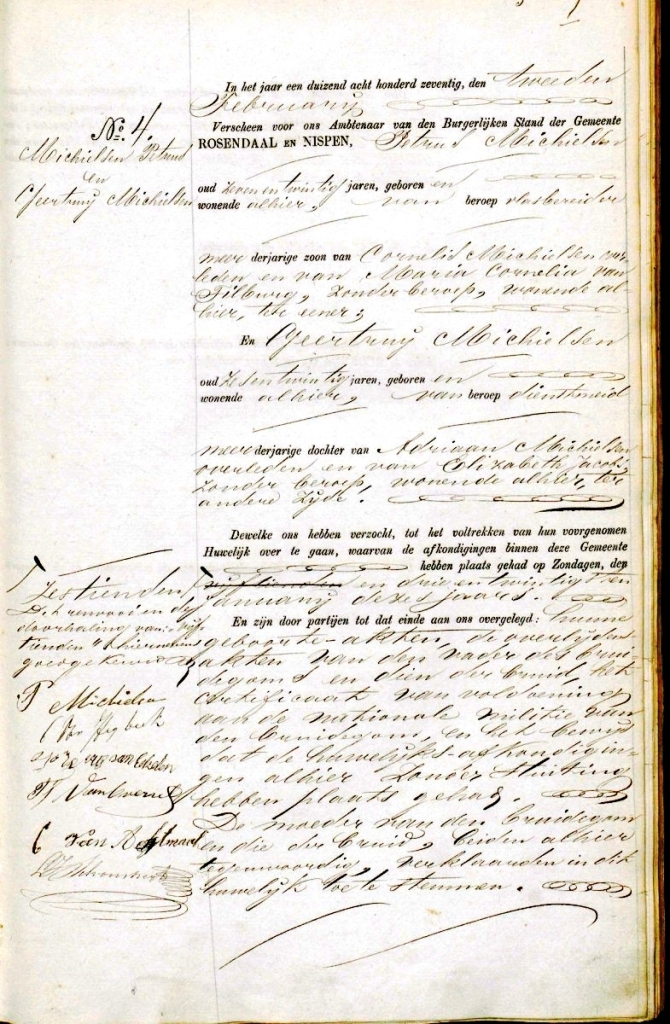 In het jaar een duizend acht honderd zeventig, den tweeden
February
Verscheen voor ons Ambtenaar van den Burgerlijken Stand der Gemeente
ROSENDAAL EN NISPEN, Petrus Michielsen
oud zeven en twintig jaren, geboren en
wonende alhier, van beroep vlasbereider
meer derjarige zoon van Cornelis Michielsen over-
leden en van Maria Cornelia van
Tilburg, zonder beroep, wonende al-
hier, ter eener;
En Geertruy Michielsen
oud zes en twintig jaren, geboren en
wonende alhier, van beroep dienstmeid
meer derjarige dochter van Adriaan Michielsen
overleden en van Elizabeth Jacobs,
zonder beroep, wonende alhier, ter
andere zyde.
Dewelke ons hebben verzocht, tot het voltrekken van hun voorgenomen
Huwelijk over te gaan, waarvan de afkondigingen binnen deze Gemeente
hebben plaats gehad op Zondagen, den
vijftienden en drie en twintigsten
January dezes jaars.
En zijn door partijen tot dat einde aan ons overgelegd: hunne
geboorte-akten, de overlijdens
akten van den vader des brui-
degoms en dien der bruid, het
certificaat van voldoening
aan de nationale militie van
den bruidegom, en het bewijs
dat de huwelijks-afkondigin-
gen alhier zonder stuiting
hebben plaats gehad.
De moeder van den bruidegom
en die der bruid, beiden alhier
tegenwoordig, verklaarden in dit
huwelijk toe te stemmen.
No. 4.
Michielsen Petrus
en
Geertruy Michielsen
Zestienden,
De renvooi en de
doorhaling van: vijf
tienden "hiernevens
goedgekeurd
P Michielsen